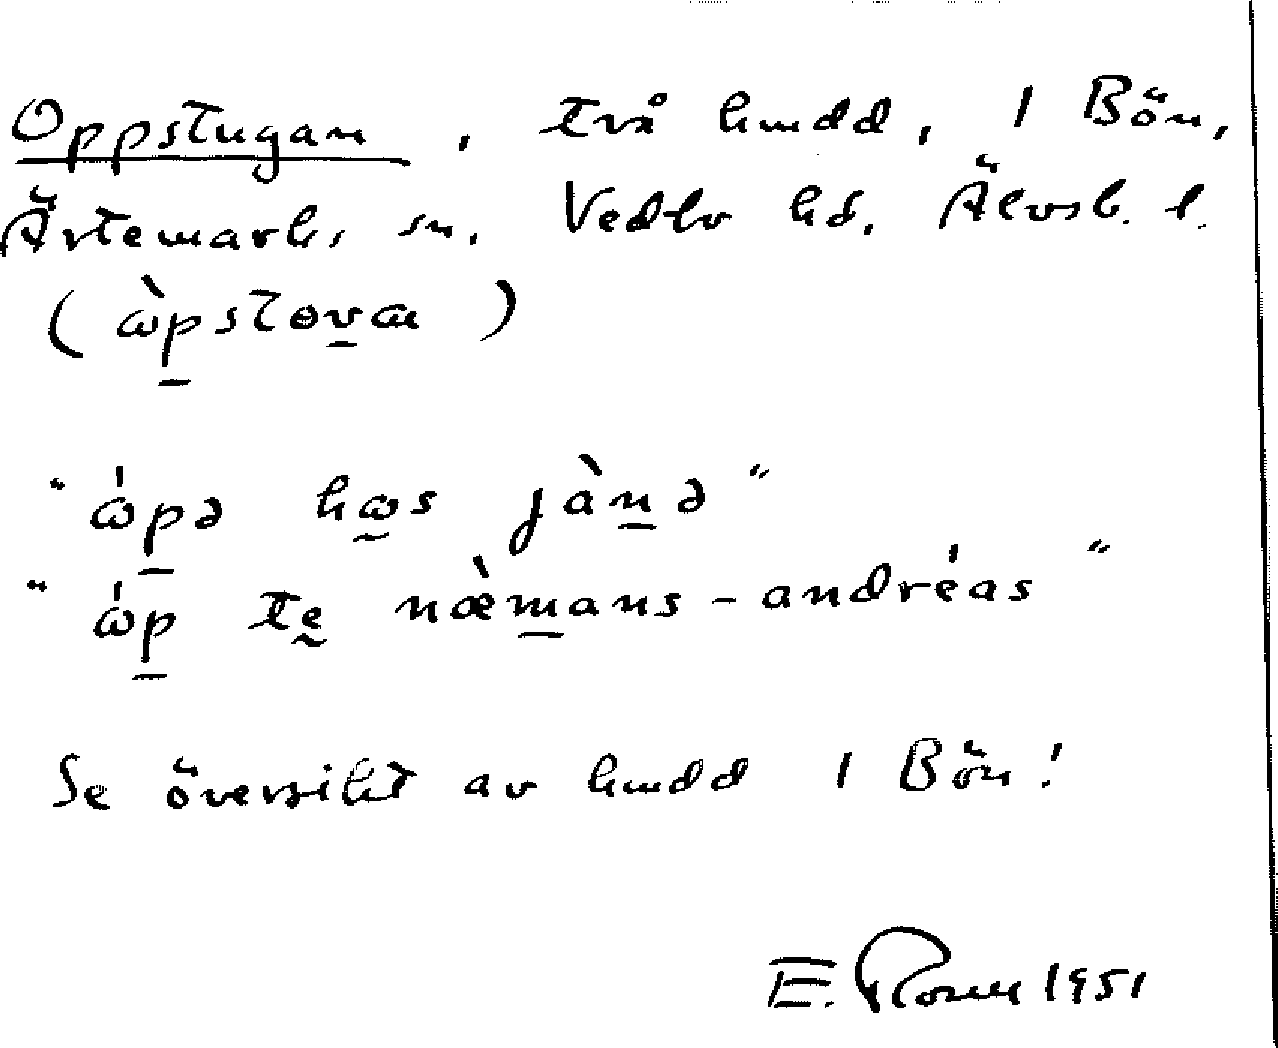 Oppstugan, två hmdd, 1 Bön,
Ärtemarks sn. Vedbo hd. Älvsb. l.
(ὼpstova)
"ώpə hos jànə"
"ώp te næ̀mans-andréas"
Se översikt av hmdd 1 Bön!
E. Rosell 1951